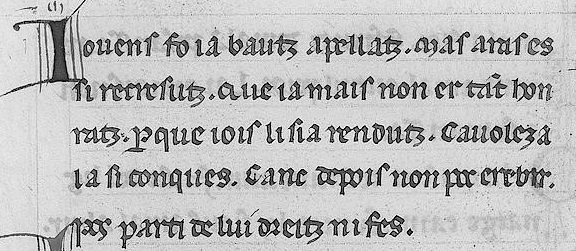 Iouens fo ia bautz apellatz. Mas aras es
si recresutz. Que iamais non er tāt hon
ratz. ꝑque iois li sia rendutz. Cauoleza
la si conques. Canc depois non poc erebre.
pres parti de lui dreitz ni fes.